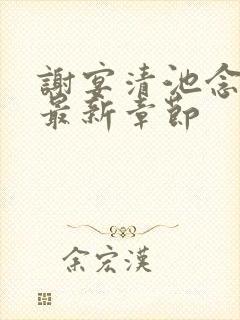 謝宴清池念
最新章節
余宏漢